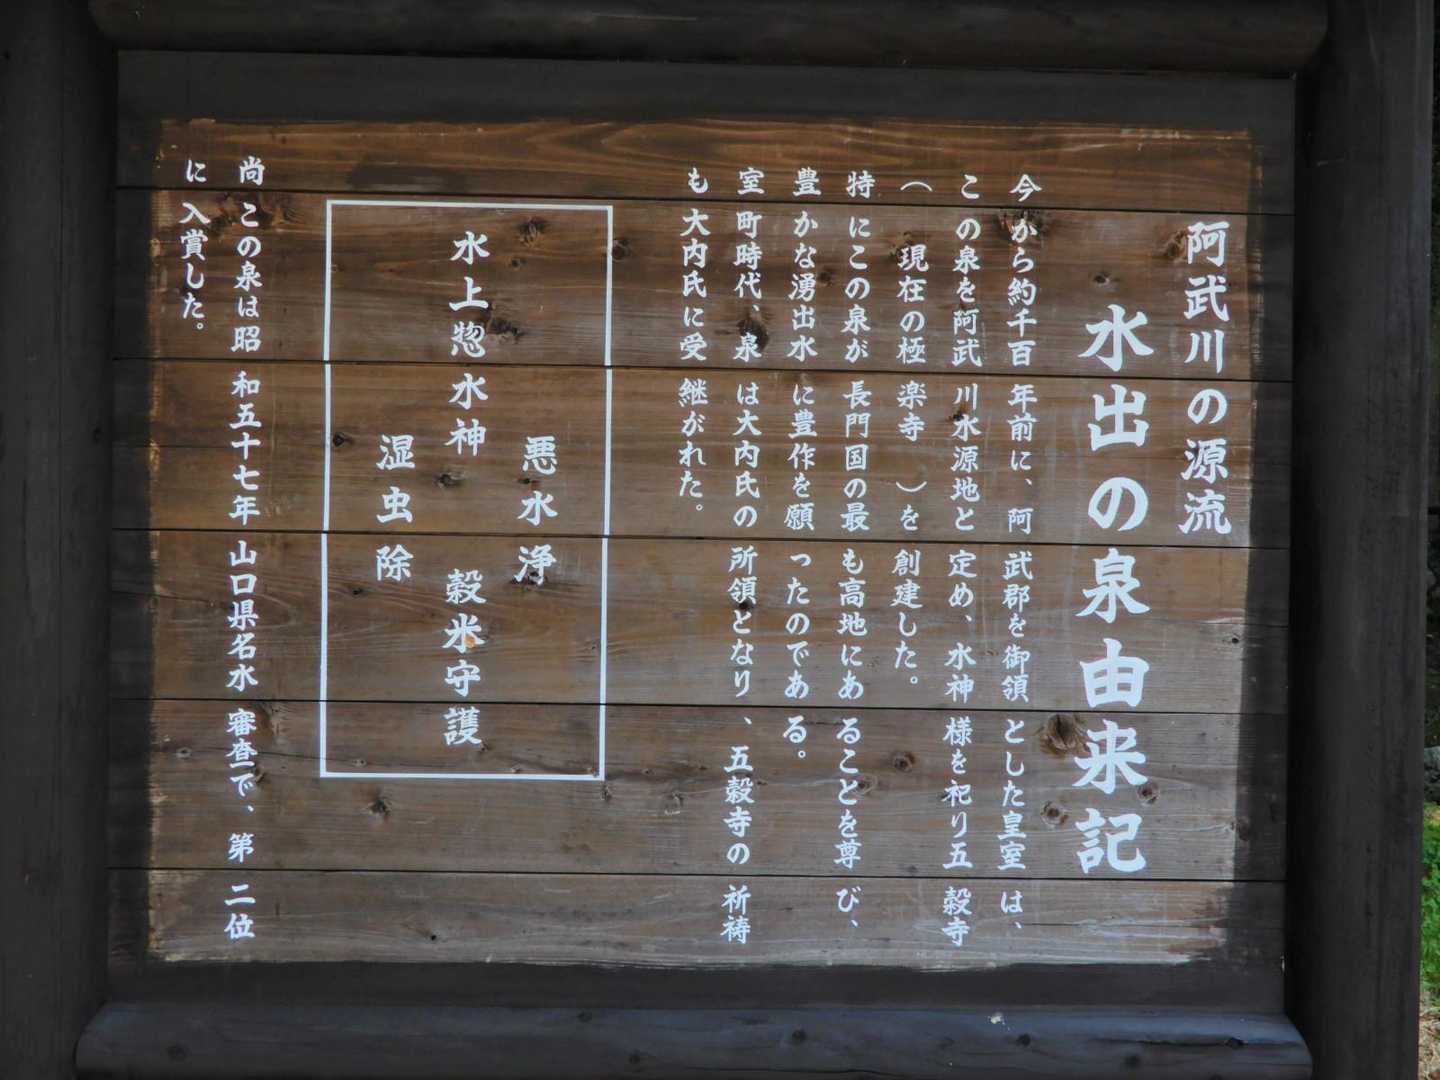 阿武川の源流
水出の泉由来記
今から約千百年前に、阿武郡を御領とした皇室は、
この泉を阿武川水源地と定め、水神様を祀り五穀寺
(現在の極楽寺)を創建した。
特にこの泉が長門国の最も高地にあることを尊び、
豊かな湧出水に豊作を願ったのである。
室町時代、泉は大内氏の所領となり、五穀寺の祈祷
も大内氏に受継がれた。
悪水浄
水上惣水神 穀米守護
湿虫除
尚この泉は昭和五十七年山口県名水審査で、第二位
に入賞した。